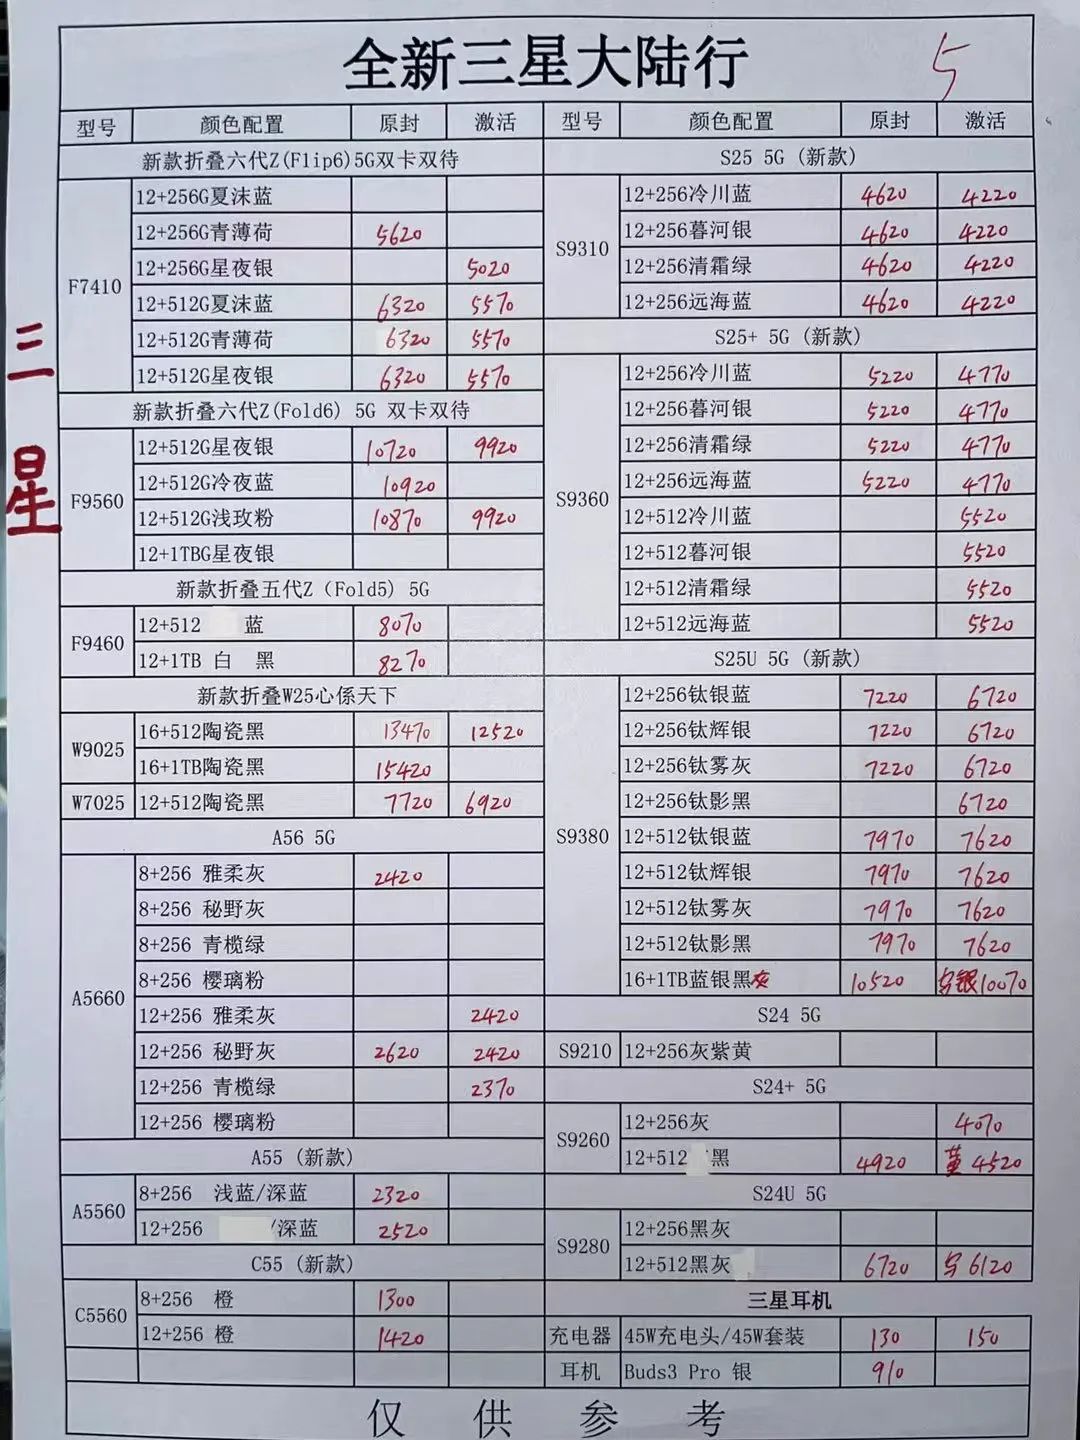 全新三星大陆行
5
三
星
型号 颜色配置 原封 激活
新款折叠六代Z(Flip6)5G双卡双待
F7410
12+256G夏沫蓝
12+256G青薄荷 5620
12+256G星夜银 5020
12+512G夏沫蓝 6320 5570
12+512G青薄荷 6320 5570
12+512G星夜银 6320 5570
新款折叠六代Z(Fold6) 5G 双卡双待
F9560
12+512G星夜银 10720 9920
12+512G冷夜蓝 10920
12+512G浅玫粉 10870 9920
12+1TBG星夜银
新款折叠五代Z（Fold5) 5G
F9460
12+512 蓝 8070
12+1TB 白 黑 8270
新款折叠W25心係天下
W9025
16+512陶瓷黑 13470 12520
16+1TB陶瓷黑 15420
W7025 12+512陶瓷黑 7720 6920
A56 5G
A5660
8+256 雅柔灰 2420
8+256 秘野灰
8+256 青榄绿
8+256 樱璃粉
12+256 雅柔灰 2420
12+256 秘野灰 2620 2420
12+256 青榄绿 2370
12+256 樱璃粉
A55 (新款)
A5560
8+256 浅蓝/深蓝 2320
12+256 /深蓝 2520
C55 (新款)
C5560
8+256 橙 1300
12+256 橙 1420
型号 颜色配置 原封 激活
S25 5G (新款)
S9310
12+256冷川蓝 4620 4220
12+256暮河银 4620 4220
12+256清霜绿 4620 4220
12+256远海蓝 4620 4220
S25+ 5G (新款)
S9360
12+256冷川蓝 5220 4770
12+256暮河银 5220 4770
12+256清霜绿 5220 4770
12+256远海蓝 5220 4770
12+512冷川蓝 5520
12+512暮河银 5520
12+512清霜绿 5520
12+512远海蓝 5520
S25U 5G (新款)
S9380
12+256钛银蓝 7220 6720
12+256钛辉银 7220 6720
12+256钛雾灰 7220 6720
12+256钛影黑 6720
12+512钛银蓝 7970 7620
12+512钛辉银 7970 7620
12+512钛雾灰 7970 7620
12+512钛影黑 7970 7620
16+1TB蓝银黑灰 10520 银10070
S24 5G
S9210 12+256灰紫黄
S24+ 5G
S9260
12+256灰 4070
12+512 黑 4920 黄 4520
S24U 5G
S9280
12+256黑灰
12+512黑灰 6720 6120
三星耳机
充电器 45W充电头/45W套装 130 150
耳机 Buds3 Pro 银 910
仅供参考